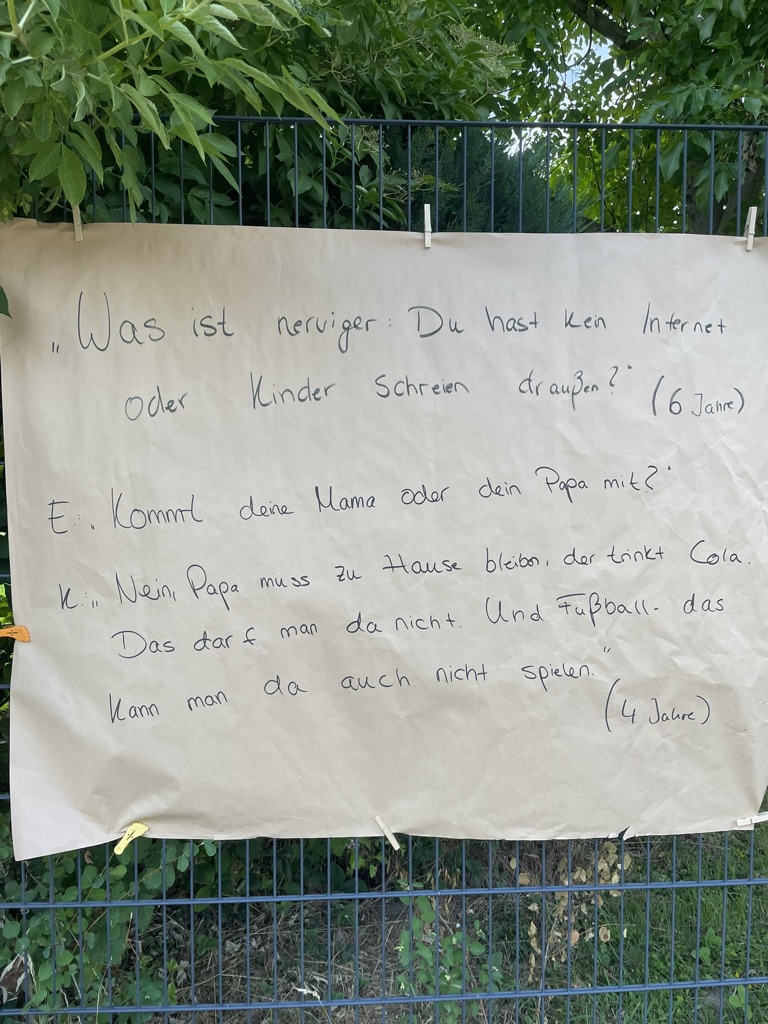 „Was ist nerviger: Du hast kein Internet
oder Kinder schreien draußen?" (6 Jahre)
E: „Kommt deine Mama oder dein Papa mit?"
K: „Nein, Papa muss zu Hause bleiben, der trinkt Cola.
Das darf man da nicht. Und Fußball- das
kann man da auch nicht spielen."
(4 Jahre)